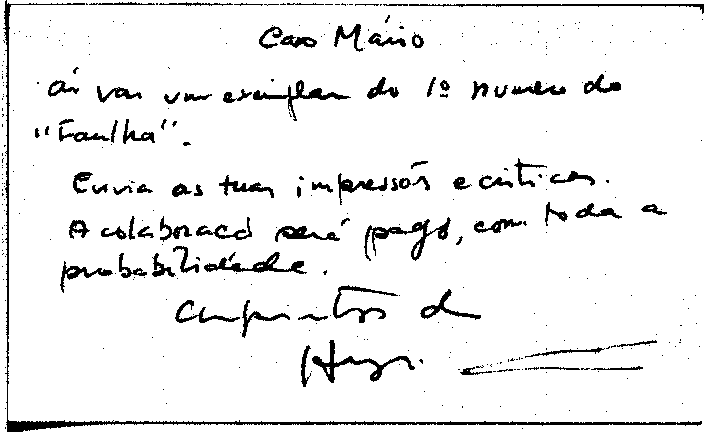 Caro Mário
aí vai um exemplar do 1º numero do
"Faulha".
Envia as tuas impressões e criticas.
A colaboração será pago, com toda a
probabilidade.
Cumprimentos do
Hugo.